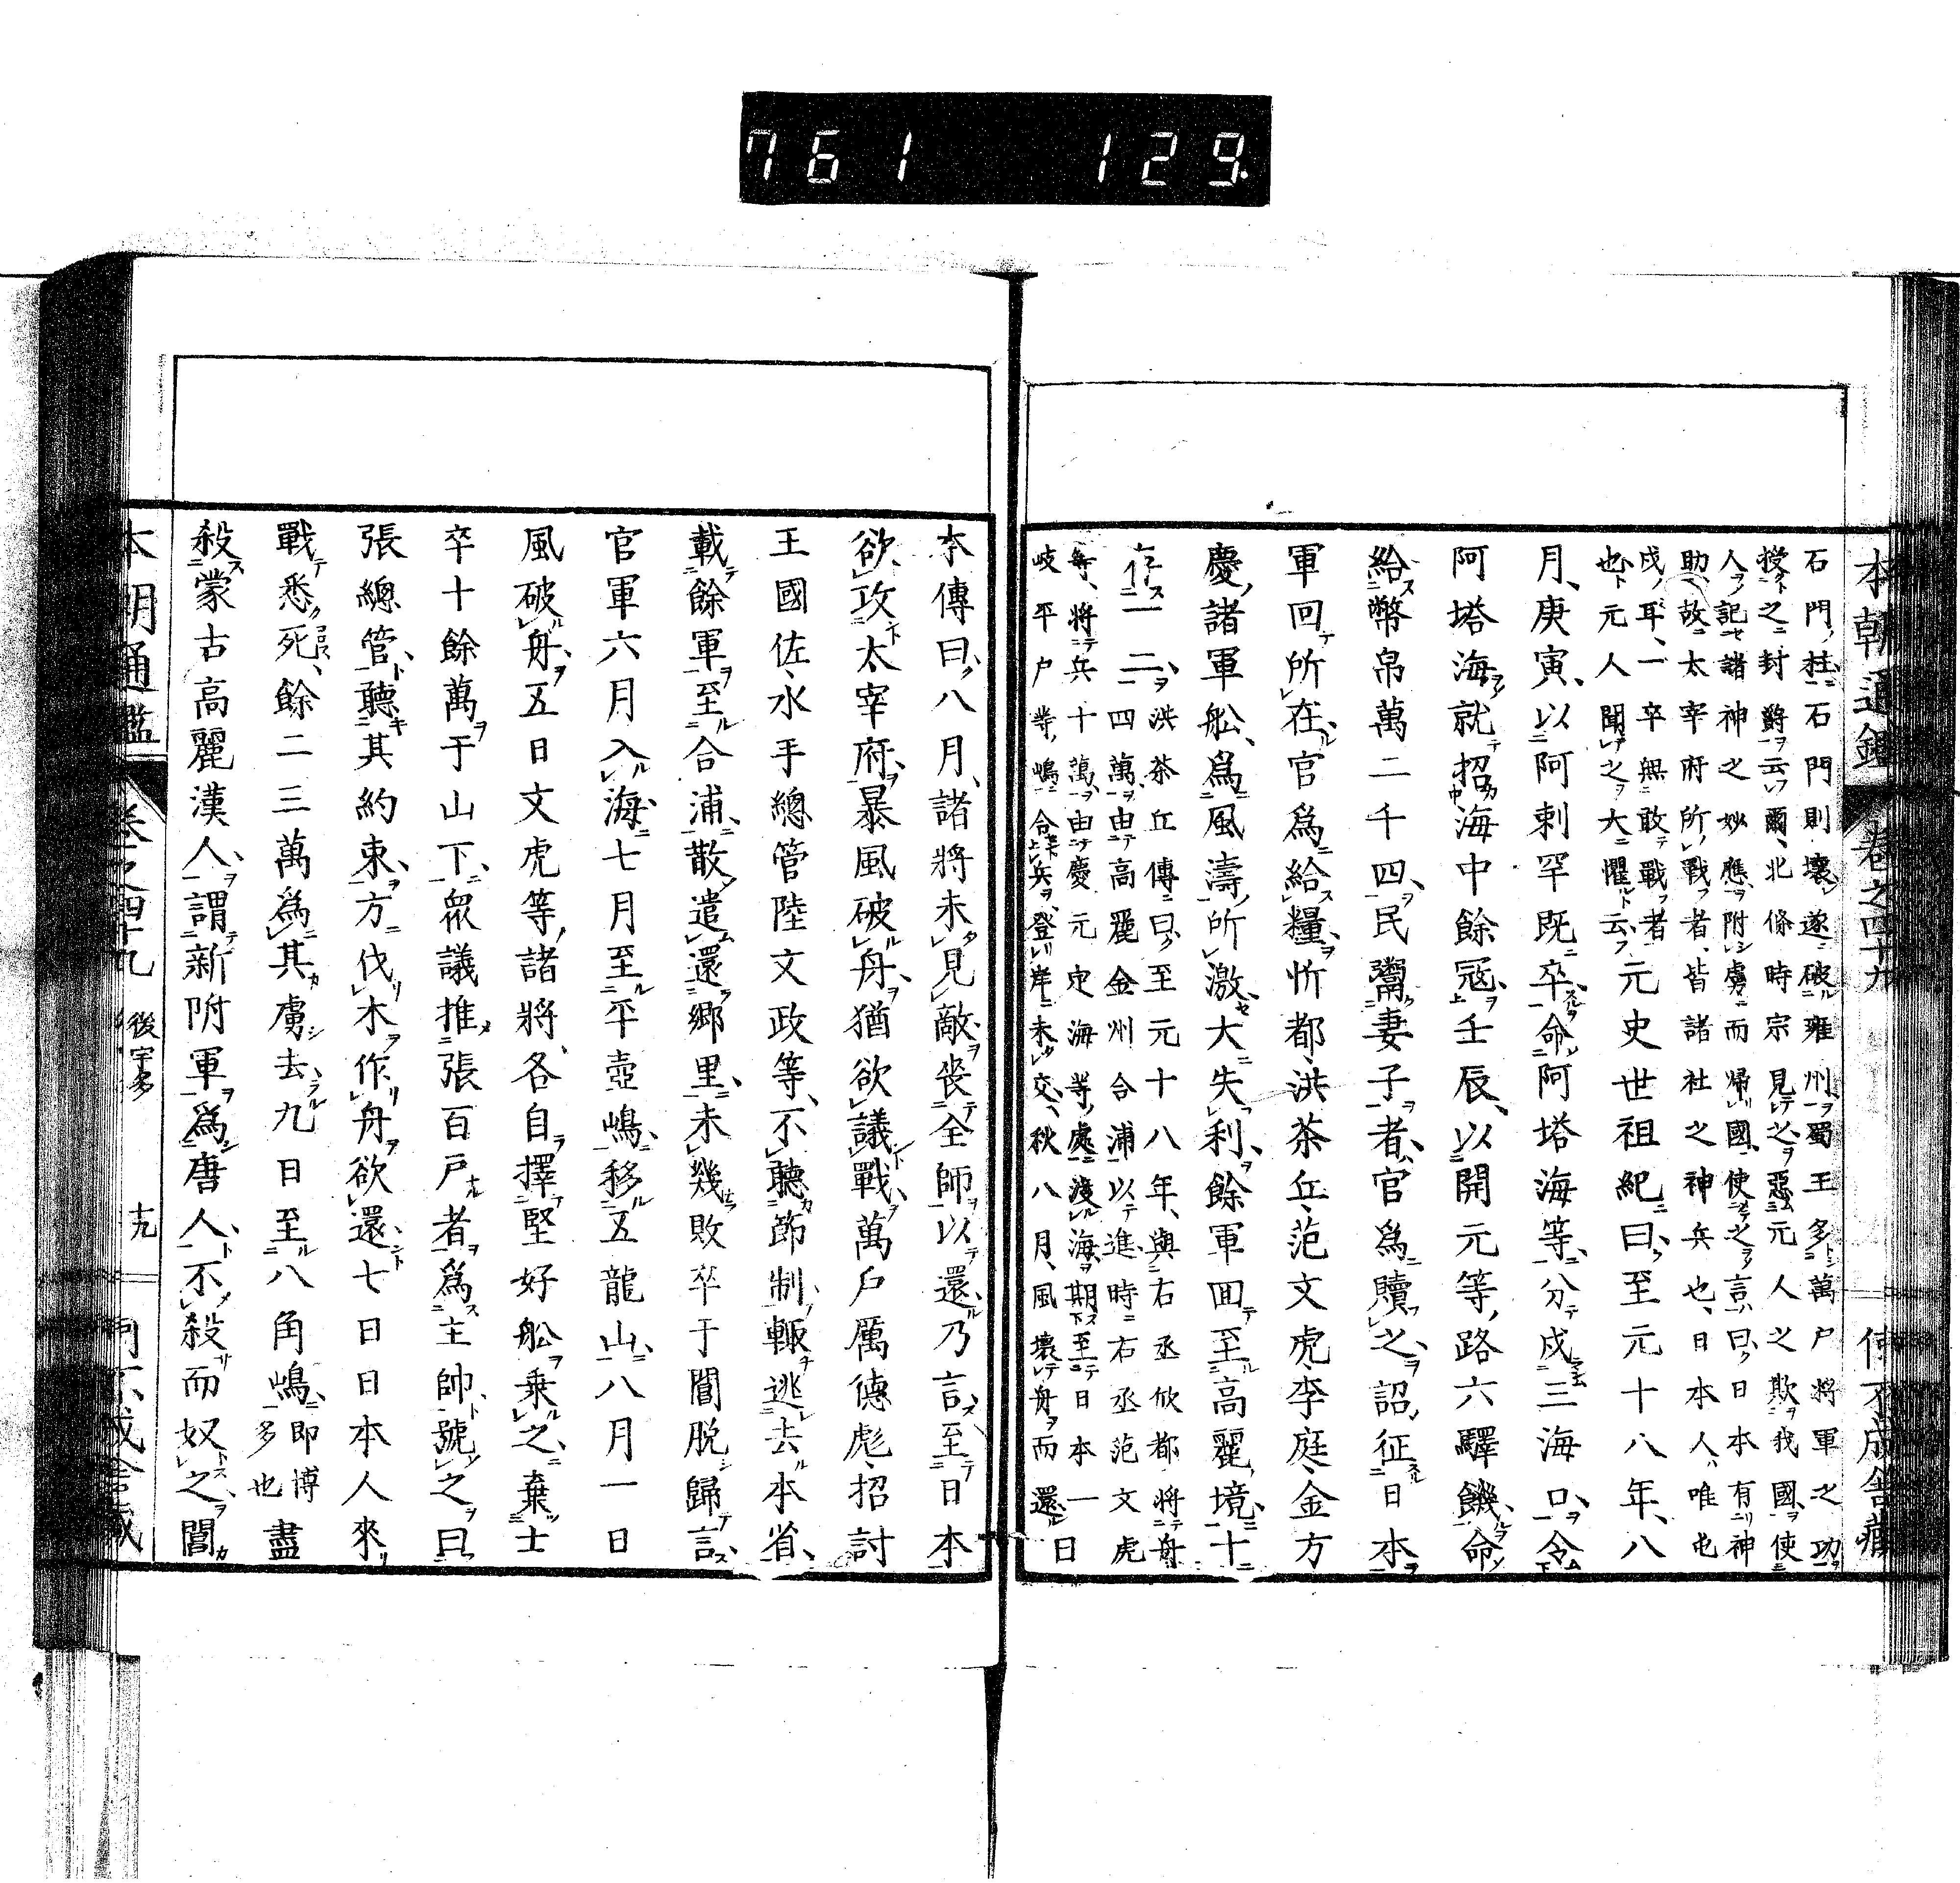 761 129
本朝通鑑 卷之四十九
石門柱石門則壞遂破雍州蜀王多萬戸將軍之功
授之封爵云爾北條時宗見之惡元人之欺我國使
人記諸神之妙應附虜而歸國使之言曰日本有神
助故太宰府所戰者皆諸社之神兵也日本人唯屯
戍耳一卒無敢戰者
也元人聞之大懼云元史世祖紀曰至元十八年八
月庚寅以阿剌罕既卒命阿塔海等分戍三海口令
阿塔海就招海中餘冦壬辰以開元等路六驛饑命
給幣帛萬二千四民鬻妻子者官爲贖之詔征日本
軍回所在官爲給糧忻都洪茶丘范文虎李庭金方
慶諸軍舩爲風濤所激大失利餘軍囬至高麗境十
存一二洪茶丘傳曰至元十八年與右丞忻都將舟
師四萬由高麗金州合浦以進時右丞范文虎
等將兵十萬由慶元定海等處渡海期至日本一
岐平戸等嶋合兵登岸未交秋八月風壞舟而還日
本傳曰八月諸將未見敵喪全師以還乃言至日本
欲攻太宰府暴風破舟猶欲議戰萬戸厲德彪招討
王國佐水手總管陸文政等不聽節制輙逃去本省
載餘軍至合浦散遣還郷里未幾敗卒于閶脱歸言
官軍六月入海七月至平壺嶋移五龍山八月一日
風破舟五日文虎等諸將各自擇堅好舩乘之棄士
卒十餘萬于山下衆議推張百戸者爲主帥號之曰
張總管聽其約束方伐木作舟欲還七日日本人來
戰悉死餘二三萬爲其虜去九日至八角嶋即博多也盡
殺蒙古高麗漢人謂新附軍爲唐人不殺而奴之閶
本朝通鑑 卷之四十九 後宇多 十九